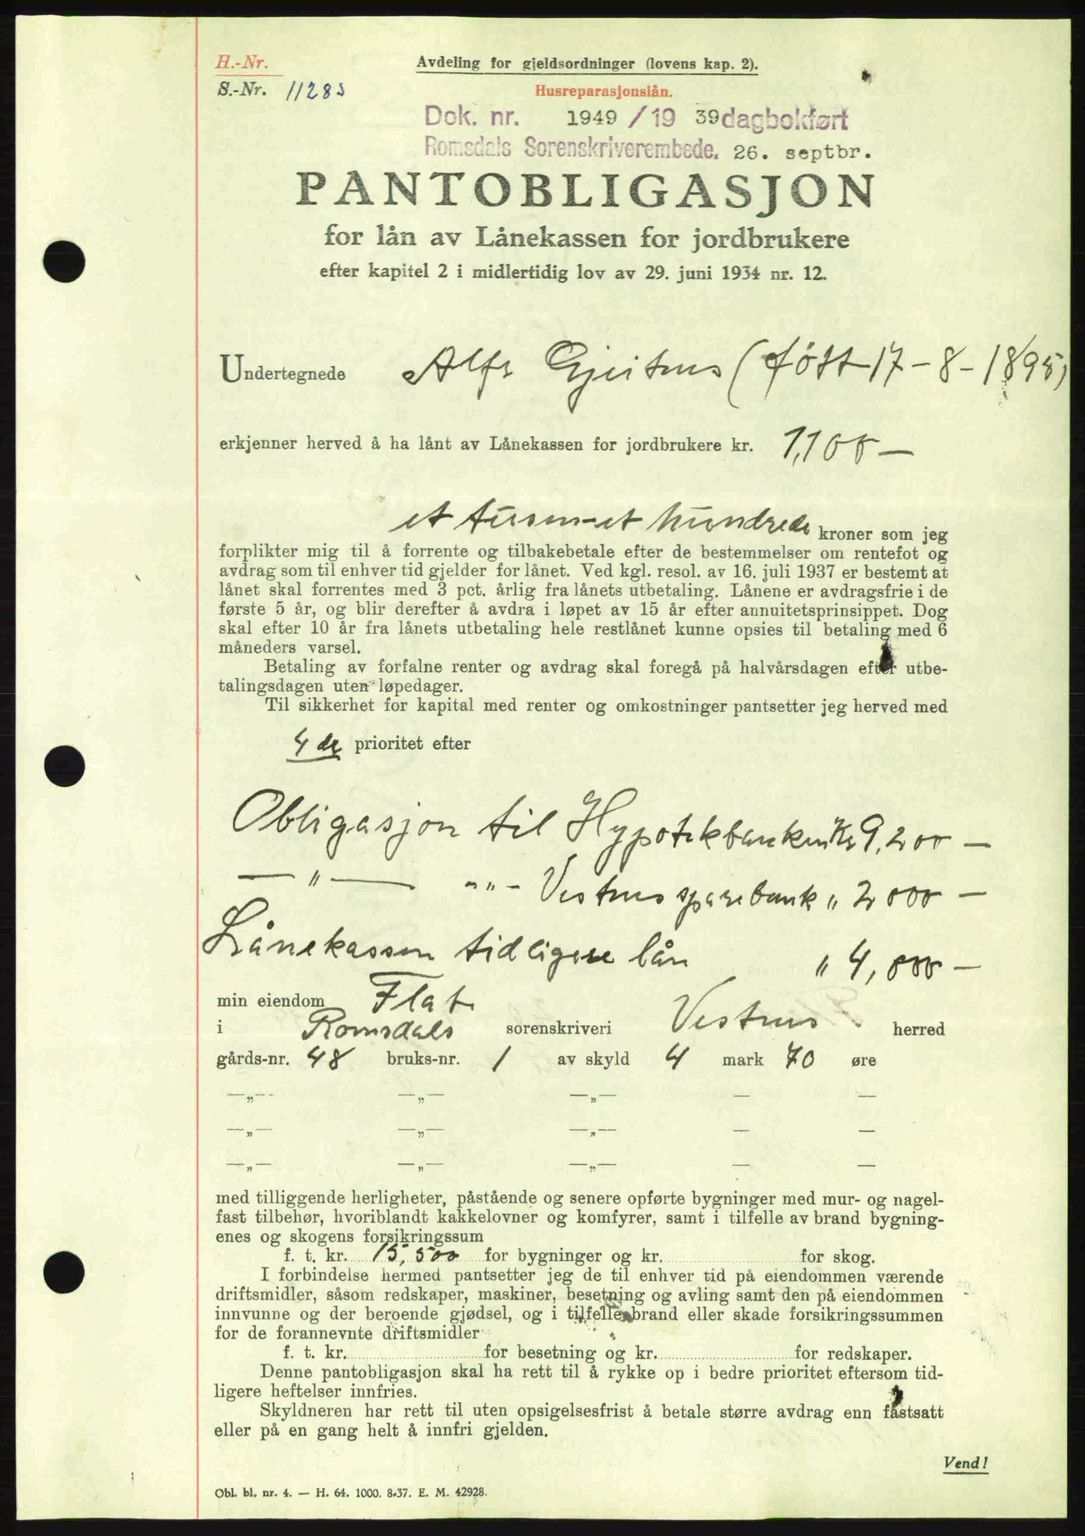 H.-Nr.
Avdeling for gjeldsordninger (lovens kap. 2).
S.-Nr. 11283
Husreparasjonslån.
Dok. nr. 1949 / 19 39 dagbokført
Romsdals Sorenskriverembede. 26. septbr.
PANTOBLIGASJON
for lån av Lånekassen for jordbrukere
efter kapitel 2 i midlertidig lov av 29. juni 1934 nr. 12.
Undertegnede Alfr Gjeitnes (født 17-8-1895)
erkjenner herved å ha lånt av Lånekassen for jordbrukere kr. 1,100 —
et tusen-et hundrede kroner som jeg
forplikter mig til å forrente og tilbakebetale efter de bestemmelser om rentefot og
avdrag som til enhver tid gjelder for lånet. Ved kgl. resol. av 16. juli 1937 er bestemt at
lånet skal forrentes med 3 pct. årlig fra lånets utbetaling. Lånene er avdragsfrie i de
første 5 år, og blir derefter å avdra i løpet av 15 år efter annuitetsprinsippet. Dog
skal efter 10 år fra lånets utbetaling hele restlånet kunne opsies til betaling med 6
måneders varsel.
Betaling av forfalne renter og avdrag skal foregå på halvårsdagen efter utbe-
talingsdagen uten løpedager.
Til sikkerhet for kapital med renter og omkostninger pantsetter jeg herved med
4 de prioritet efter
Obligasjon til Hypotekbanken Kr 9,200 —
— " — - " - Vestnes sparebank " 2000 —
Lånekassen tidligere lån " 4,000 —
min eiendom Flate
i Romsdals sorenskriveri Vestnes herred
gårds-nr. 48 bruks-nr. 1 av skyld 4 mark 70 øre
—„— —„— —„— — —
—„— —„— —„— — —
—„— —„— —„— — —
med tilliggende herligheter, påstående og senere opførte bygninger med mur- og nagel-
fast tilbehør, hvoriblandt kakkelovner og komfyrer, samt i tilfelle av brand bygning-
enes og skogens forsikringssum
f. t. kr. 15,500 for bygninger og kr. for skog.
I forbindelse hermed pantsetter jeg de til enhver tid på eiendommen værende
driftsmidler, såsom redskaper, maskiner, besetning og avling samt den på eiendommen
innvunne og der beroende gjødsel, og i tilfelle brand eller skade forsikringssummen
for de forannevnte driftsmidler
f. t. kr. for besetning og kr. for redskaper.
Denne pantobligasjon skal ha rett til å rykke op i bedre prioritet eftersom tid-
ligere heftelser innfries.
Skyldneren har rett til uten opsigelsesfrist å betale større avdrag enn fastsatt
eller på en gang helt å innfri gjelden.
Vend!
Obl. bl. nr. 4. — H. 64. 1000. 8-37. E. M. 42928.